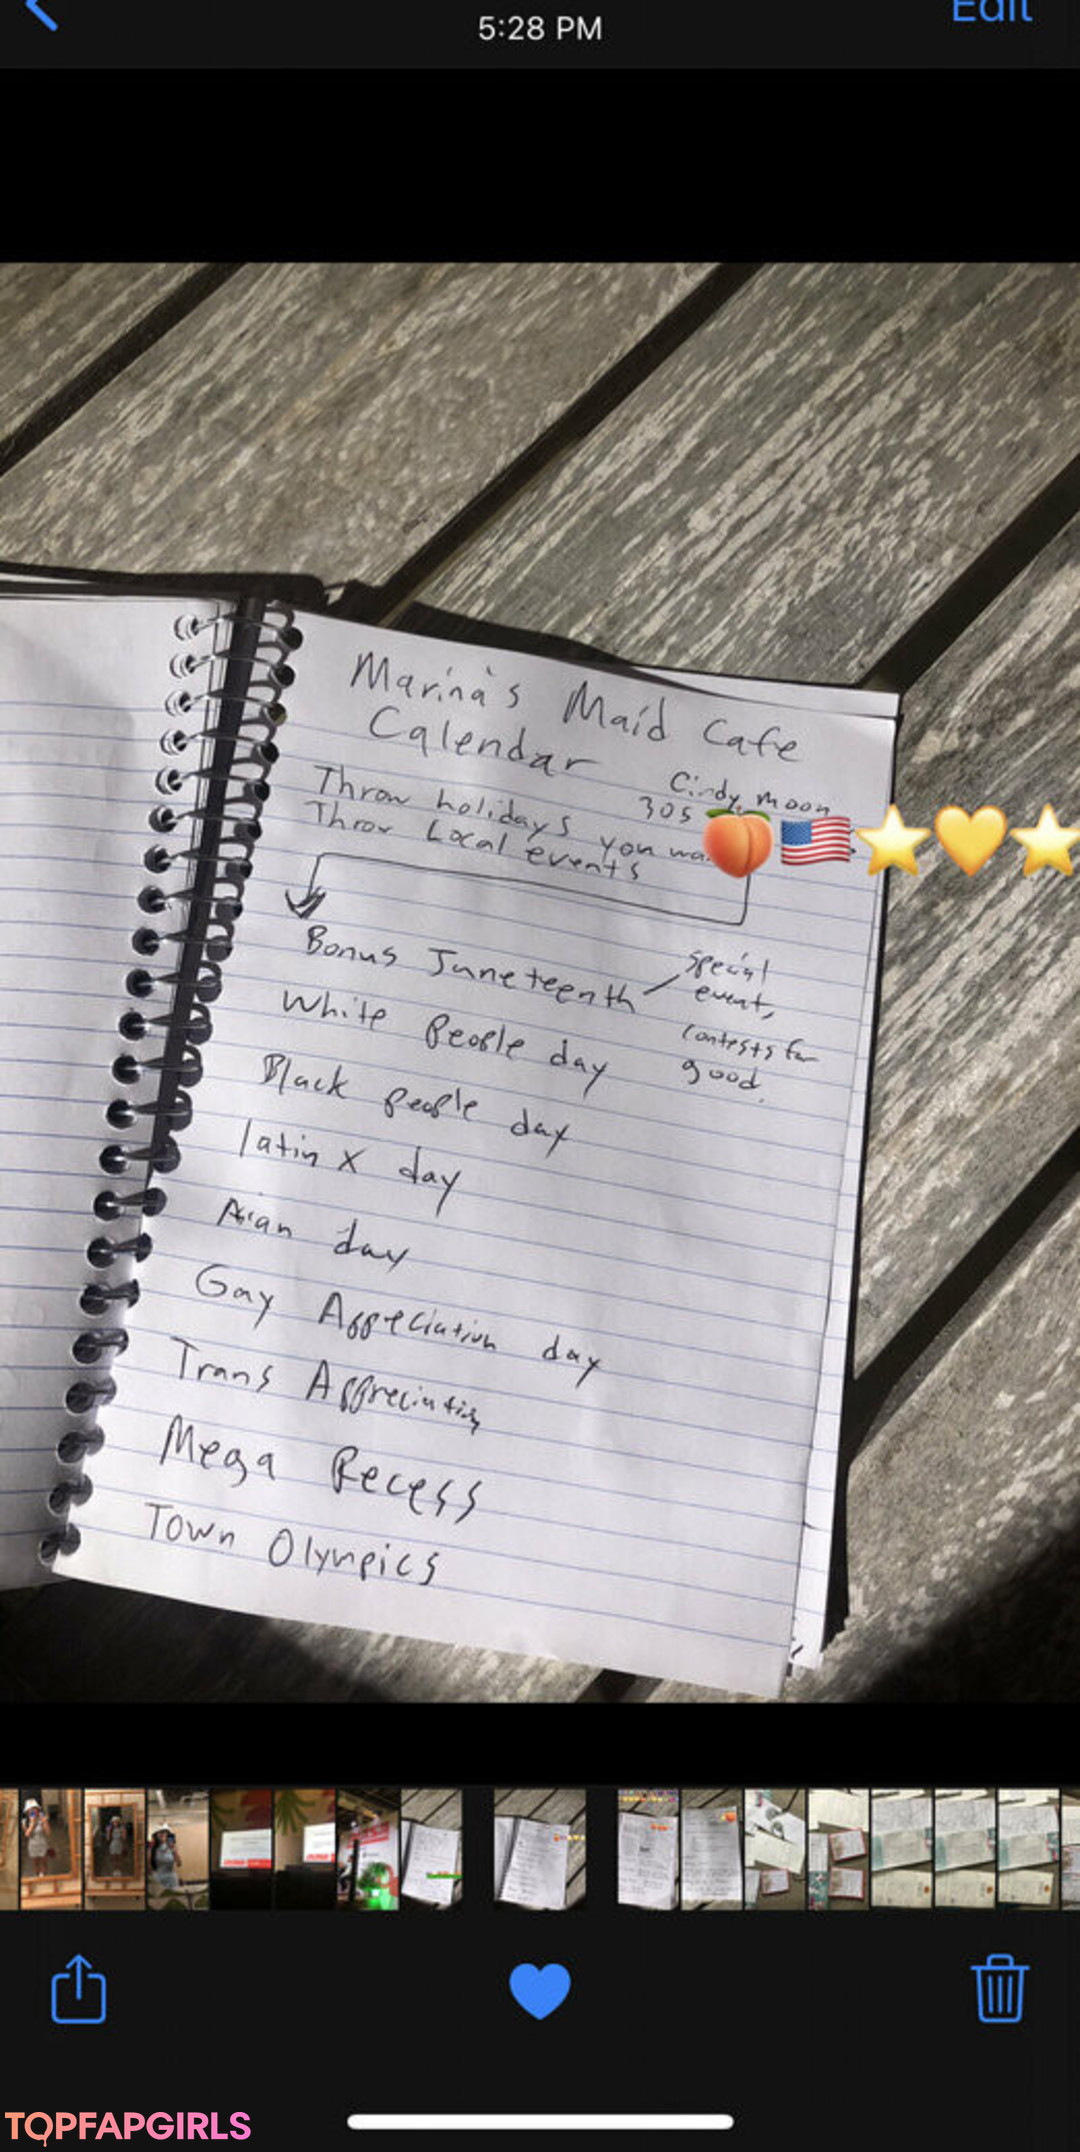 5:28 PM
Edit
Marina's Maid Cafe
Calendar
Cindy Moon
305
Throw holidays you
Throw Local events
Bonus Juneteenth
special
event,
contests for
good.
White People day
Black people day
latin x day
Asian day
Gay Appreciation day
Trans Appreciation
Mega Recess
Town Olympics
TOPFAPGIRLS